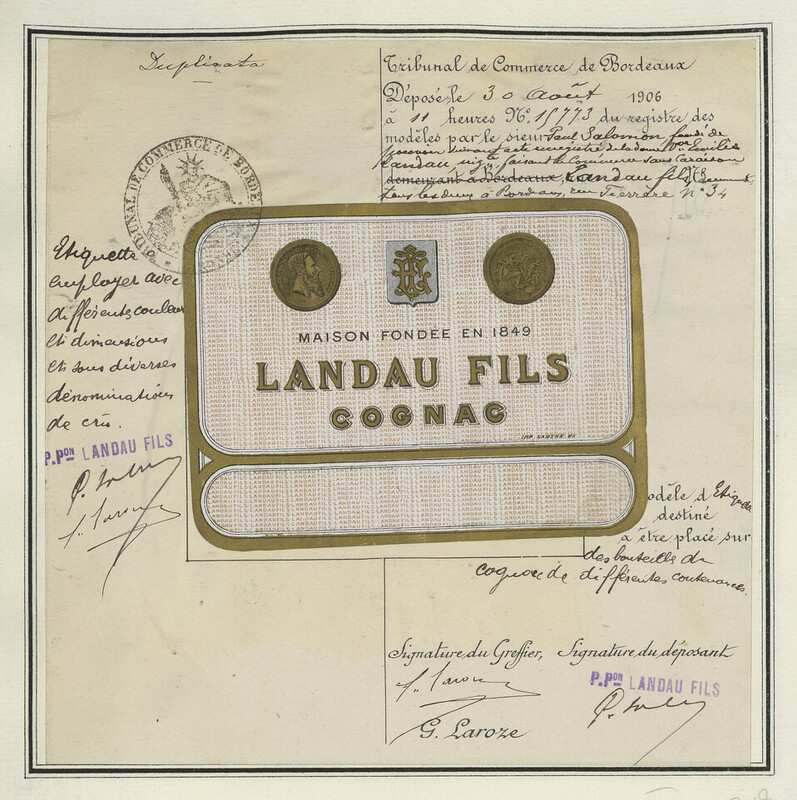 Duplicata
Tribunal de Commerce de Bordeaux
Déposé, le 30 août 1906
à 11 heures N°. 15773 du registre des
modèles par le sieur Paul Salomon, fondé de
pouvoir suivant acte enregistré de la dame Vve Emilie
Landau nég.te faisant le Commerce sous la raison
demeurant à Bordeaux, Landau fils,
tous les deux à Bordeaux, rue Ferrere N° 34
TRIBUNAL DE COMMERCE DE BORDEAUX
Etiquette
employer avec
différents couleur
et dimensions
et sous diverses
dénominations
de cru.
P.PON LANDAU FILS
MAISON FONDÉE EN 1849
LANDAU FILS
COGNAC
modèle d'Etiquette
destiné
à être placé sur
des bouteille de
cognac de différentes contenances.
Signature du Greffier, Signature du déposant
P.PON LANDAU FILS
G. Laroze